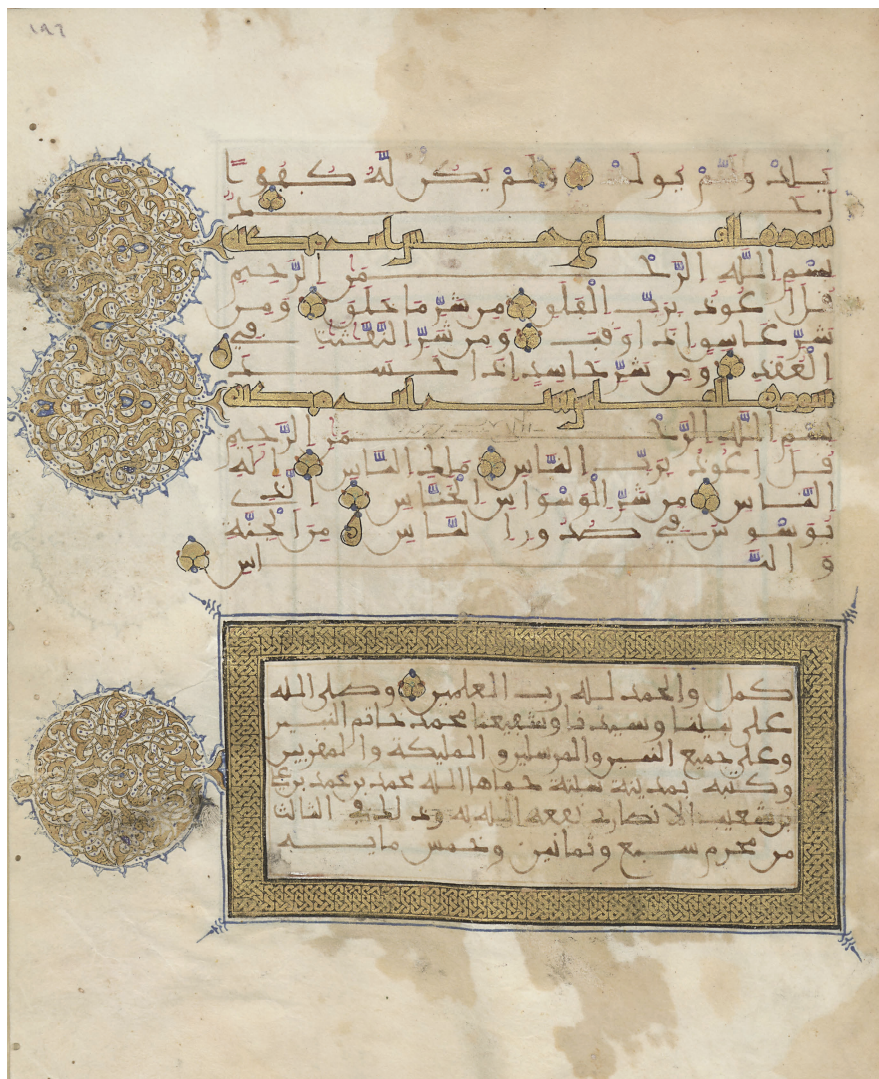 ١٩٦
يلد ولم يولد ولم يكن له كفوا
أحد
سورة الفلق خمس اي مكية
بسم الله الرحمن الرحيم
قل أعوذ برب الفلق من شر ما خلق ومن
شر غاسق اذا وقب ومن شر النفثت في
العقد ومن شر حاسد اذا حسد
سورة الناس ست اي مكية
بسم الله الرحمن الرحيم
قل أعوذ برب الناس ملك الناس اله
الناس من شر الوسواس الخناس الذي
يوسوس في صدور الناس من الجنة
والناس
كمل والحمد لله رب العلمين وصلى الله
على نبينا وسيدنا وشفيعنا محمد خاتم النبيين
وعلى جميع النبيين والمرسلين والمليكة والمقربين
وكتبه بمدينة حماها الله محمد بن محمد بن
بن شعيب الانصاري نفعه الله به وذلك في الثالث
من محرم سبع وثمانين وخمس ماية